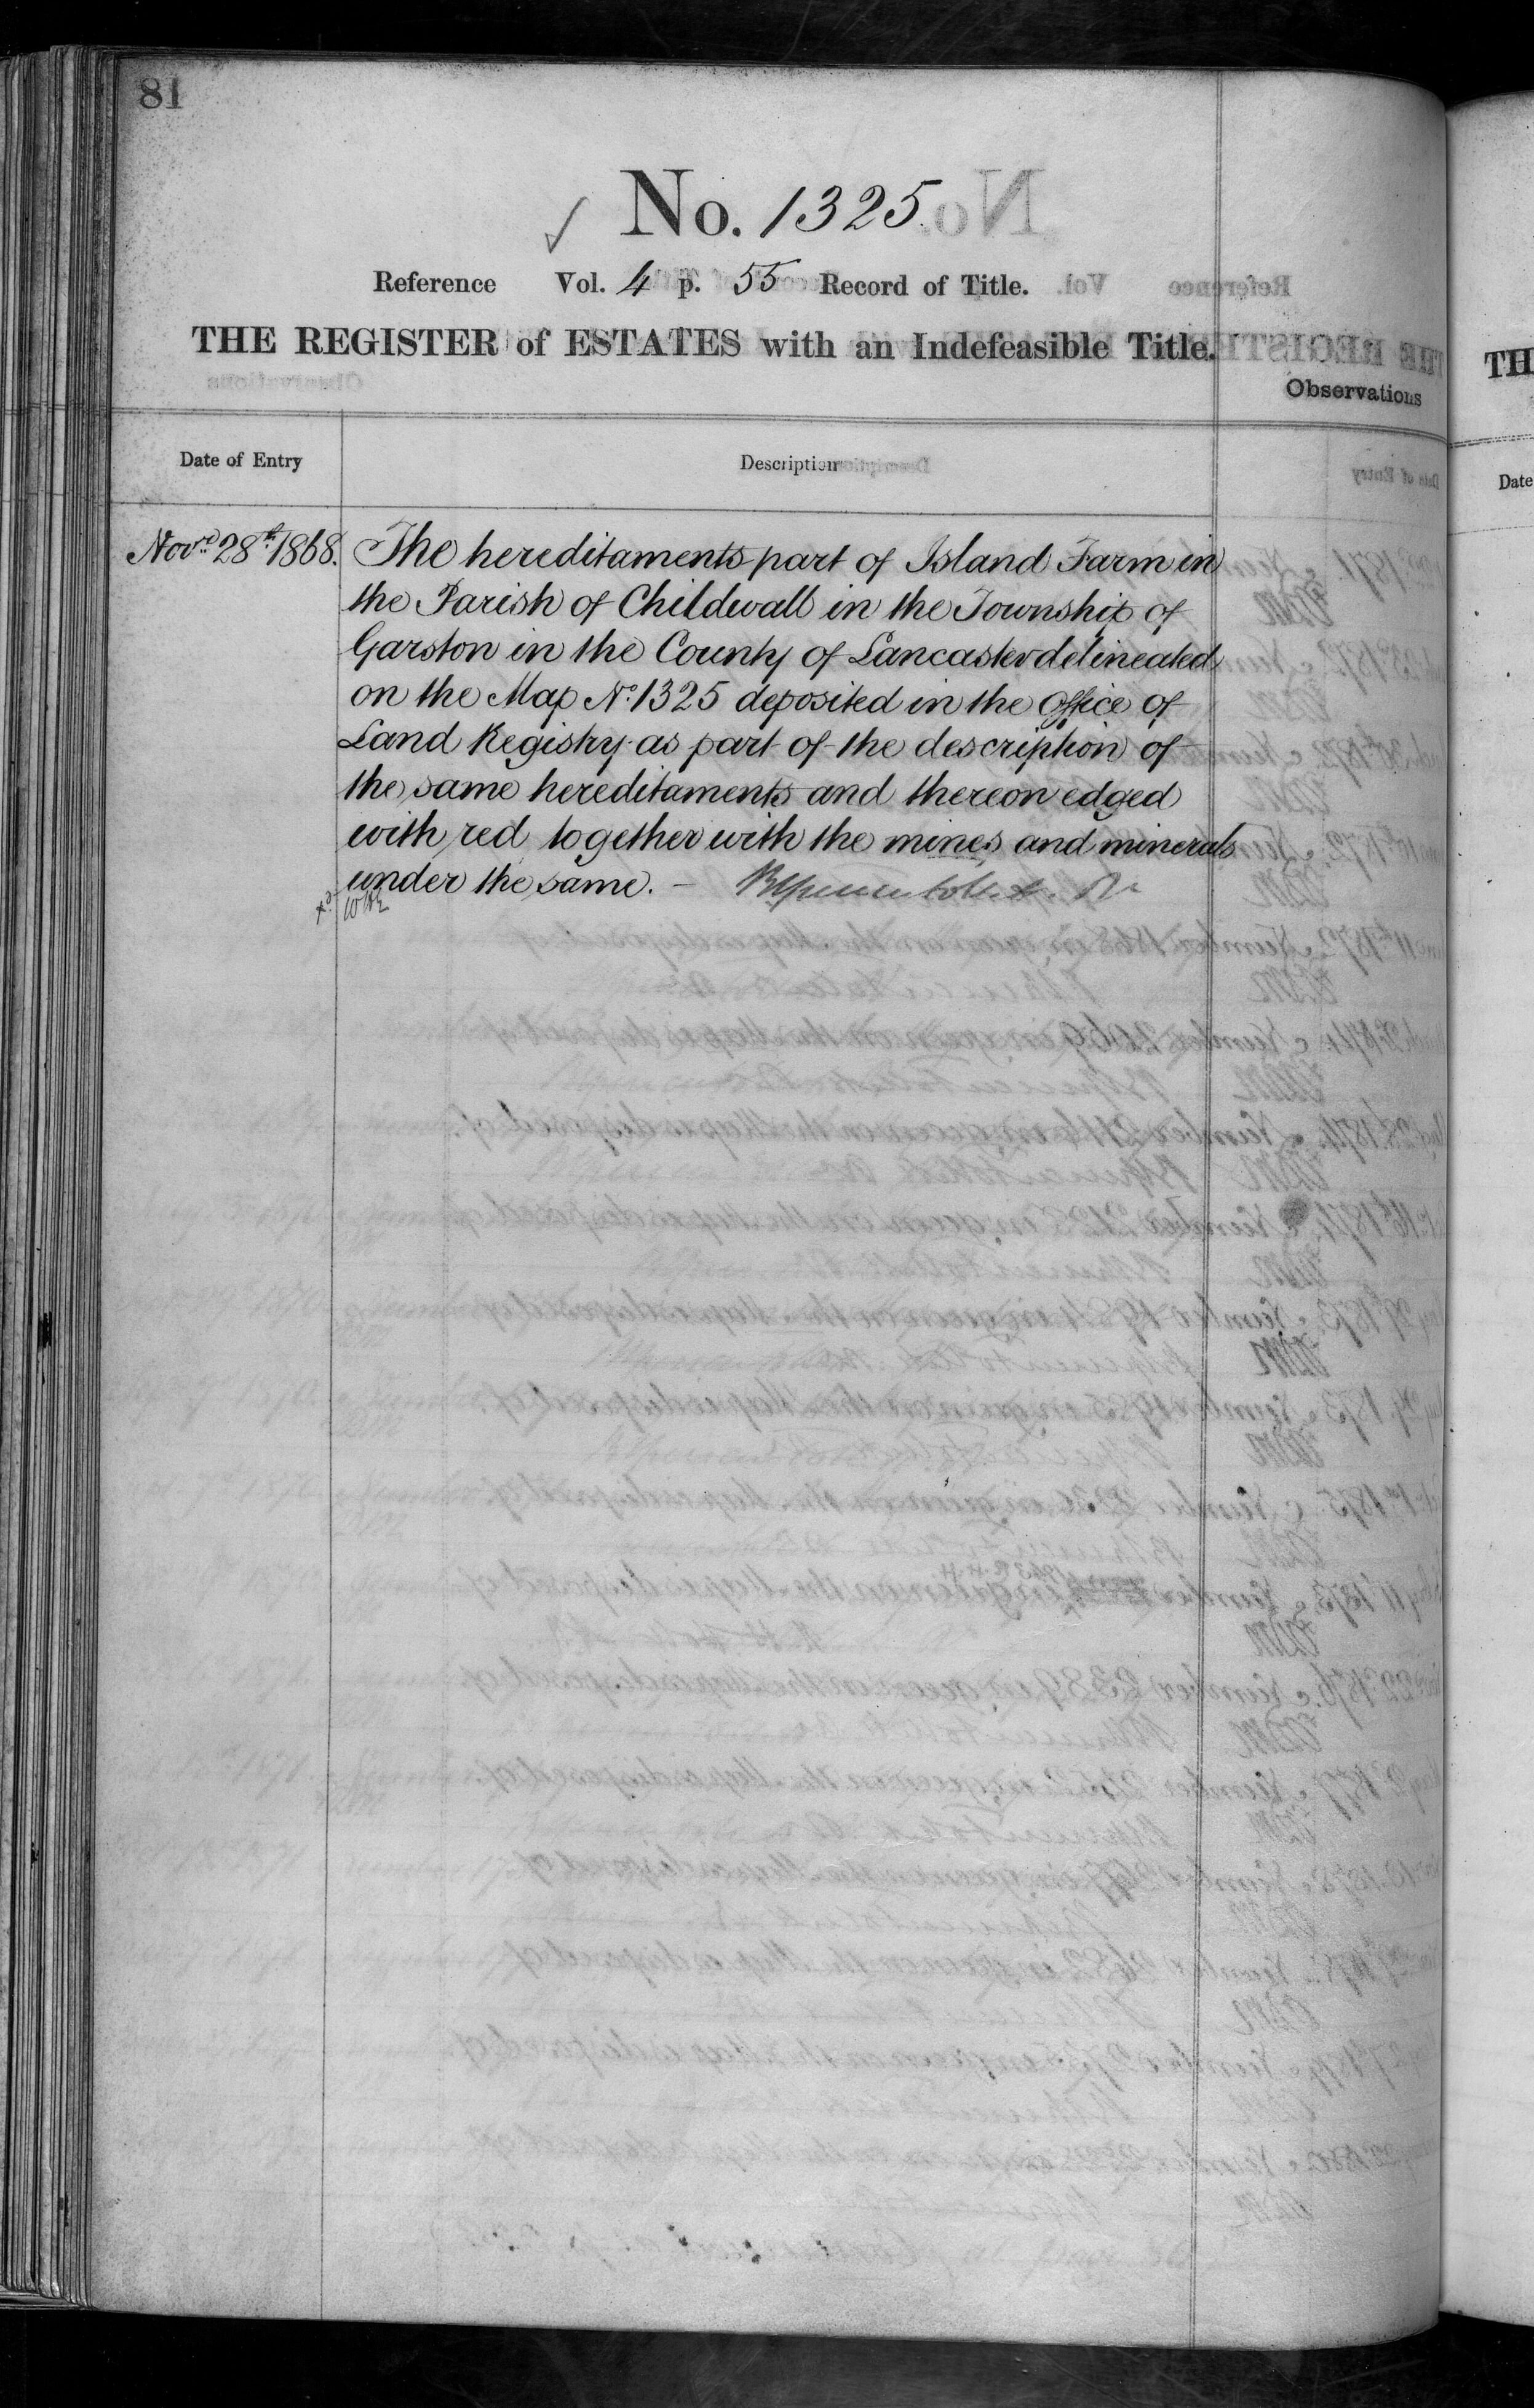 81
No. 1325.
Reference Vol. 4 p. 55 Record of Title.
THE REGISTER of ESTATES with an Indefeasible Title.
Observations
Date of Entry
Description
Novr. 28th 1868.
The hereditaments part of Island Farm in
the Parish of Childwall in the Township of
Garston in the County of Lancaster delineated
on the Map No. 1325 deposited in the Office of
Land Registry as part of the description of
the same hereditaments and thereon edged
with red together with the mines and minerals
under the same. –
TH
Date